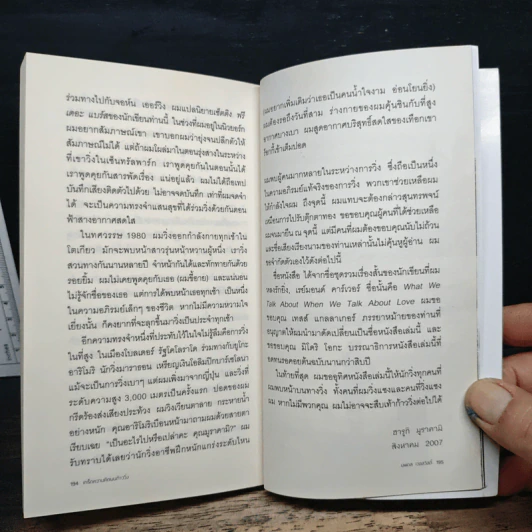 ร่วมทางไปกับจอห์น เออร์วิง ผมแปลนิยายเซ็ตติง ฟรี
เดอะ แบร์สของนักเขียนท่านนี้ ในช่วงที่ผมอยู่ในนิวยอร์ก
ผมอยากสัมภาษณ์เขา เขาบอกผมว่ายุ่งจนปลีกตัวให้
สัมภาษณ์ไม่ได้ แต่ถ้าผมโผล่มาในตอนรุ่งสางในระหว่าง
ที่เขาวิ่งในเซ็นทรัลพาร์ก เราพูดคุยกันในตอนนั้นได้
เราพูดคุยกันสารพัดเรื่อง แน่อยู่แล้ว ผมไม่ได้ถือเทป
บันทึกเสียงติดตัวไปด้วย ไม่อาจจดบันทึก เท่าที่ผมจดจำ
ได้ จะเป็นความทรงจำแสนสุขที่ได้ร่วมวิ่งด้วยกันตอน
ฟ้าสางอากาศสดใส
ในทศวรรษ 1980 ผมวิ่งออกกำลังกายทุกเช้าใน
โตเกียว มักจะพบหน้าสาวรุ่นหน้าหวานผู้หนึ่ง เราวิ่ง
สวนทางกันนานหลายปี จำหน้ากันได้และทักทายกันด้วย
รอยยิ้ม ผมไม่เคยพูดคุยกับเธอ (ผมขี้อาย) และแน่นอน
ไม่รู้จักชื่อของเธอ แต่การได้พบหน้าเธอทุกเช้า เป็นหนึ่ง
ในความอภิรมย์เล็กๆ ของชีวิต หากไม่มีความหมายใจ
เยี่ยงนั้น ก็คงยากที่จะลุกขึ้นมาวิ่งเป็นประจำทุกเช้า
อีกความทรงจำหนึ่งที่ประทับไว้ในใจไม่รู้ลืมคือการวิ่ง
ในที่สูง ในเมืองโบลเดอร์ รัฐโคโลราโด ร่วมทางกับยูโกะ
อาริโมริ นักวิ่งมาราธอน เหรียญเงินโอลิมปิกบาร์เซโลนา
แม้จะเป็นการวิ่งเบาๆ แต่ผมเพิ่งมาจากญี่ปุ่น และวิ่งที่
ระดับความสูง 3,000 เมตรเป็นครั้งแรก ปอดของผม
กรีดร้องส่งเสียงประท้วง ผมวิงเวียนตาลาย กระหายน้ำ
อย่างหนัก คุณอาริโมริเบือนหน้ามาถามผมด้วยสายตา
เรียบเฉย "เป็นอะไรไปหรือเปล่าคะ คุณมูราคามิ?" ผม
รับทราบได้เลยว่านักวิ่งอาชีพฝึกหนักแกร่งระดับไหน
194 เกร็ดความคิดบนก้าววิ่ง
(ผมอยากเพิ่มเติมว่าเธอเป็นคนน้ำใจงาม อ่อนโยนยิ่ง)
ผมต้องรอถึงวันที่สาม ร่างกายของผมคุ้นชินกับที่สูง
อากาศบางเบา ผมสูดอากาศบริสุทธิ์สดใสของเทือกเขา
ร็อกกี้เข้าเต็มปอด
ผมพบผู้คนมากหลายในระหว่างการวิ่ง ซึ่งถือเป็นหนึ่ง
ในความอภิรมย์แท้จริงของการวิ่ง พวกเขาช่วยเหลือผม
ให้กำลังใจผม ถึงจุดนี้ ผมแทบจะต้องกล่าวสุนทรพจน์
เหมือนการไปรับตุ๊กตาทอง ขอขอบคุณผู้คนที่ได้ช่วยเหลือ
ผมจนมายืน ณ จุดนี้ แต่มีคนที่ผมต้องขอบคุณนับไม่ถ้วน
และชื่อเสียงเรียงนามของท่านเหล่านั้นไม่คุ้นหูผู้อ่าน ผม
ขอจำกัดตัวเองไว้ดังต่อไปนี้
ชื่อหนังสือ ได้จากชื่อชุดรวมเรื่องสั้นของนักเขียนที่ผม
หลงรักยิ่ง, เรย์มอนด์ คาร์เวอร์ ชื่อนั้นคือ What We
Talk About When We Talk About Love ผมขอ
ขอบคุณ เทสส์ แกลลาเกอร์ ภรรยาหม้ายของท่านที่
อนุญาตให้ผมนำมาดัดเปลี่ยนเป็นชื่อหนังสือเล่มนี้ และ
ขอขอบคุณ มิโดริ โอกะ บรรณาธิการหนังสือเล่มนี้ที่
อดทนรอคอยต้นฉบับนานกว่าสิบปี
ในท้ายที่สุด ผมขออุทิศหนังสือเล่มนี้ให้นักวิ่งทุกคนที่
ผมพบหน้าบนทางวิ่ง ทั้งคนที่ผมวิ่งแซงและคนที่วิ่งแซง
ผม หากไม่มีพวกคุณ ผมไม่อาจจะสืบเท้าก้าววิ่งต่อไปได้
ฮารูกิ มูราคามิ
สิงหาคม 2007
195